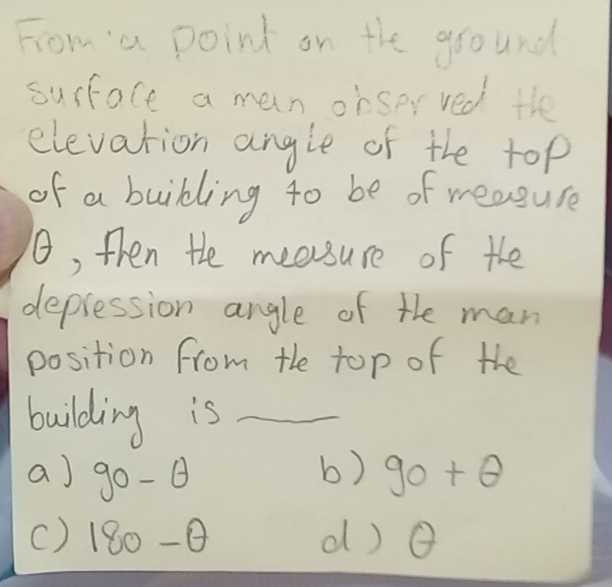 From a point on the ground
surface a man observed the
elevation angle of the top
of a building to be of measure
θ, then the measure of the
depression angle of the man
position from the top of the
building is ___
a) 90 - θ b) 90 + θ
c) 180 - θ d) θ